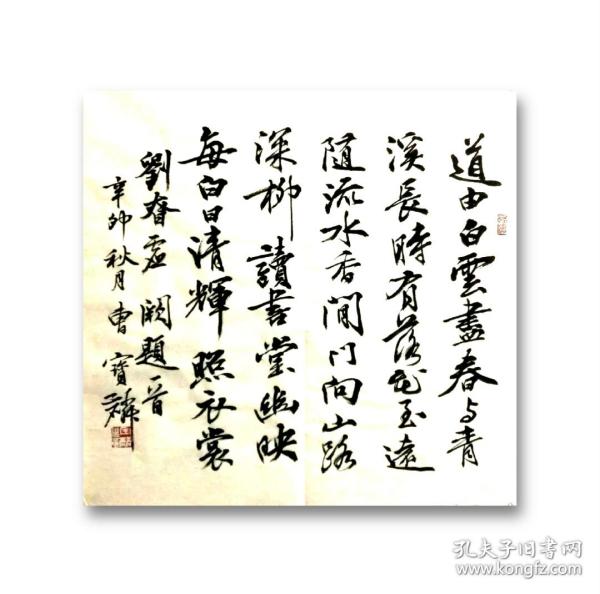 道由白雲盡春与青
溪長時有落花至遠
隨流水香閒門向山路
深柳讀書堂幽映
每白日清輝照衣裳
劉眘虛闕題一首
辛卯秋月曹寶麟
孔夫子旧书网
www.kongfz.com